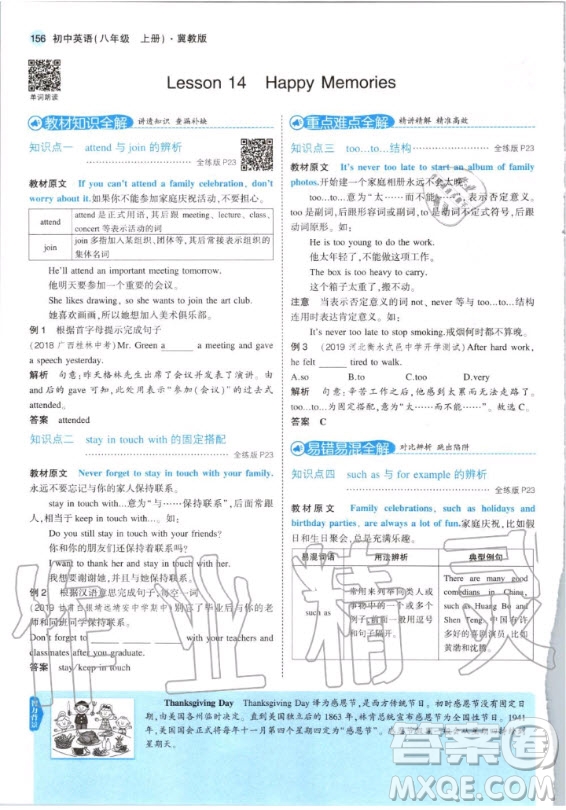 156 初中英语(八年级 上册)·冀教版
单词朗读
Lesson 14 Happy Memories
教材知识全解 讲透知识 查漏补缺
知识点一 attend 与 join 的辨析
全练版 P23
教材原文 If you can't attend a family celebration, don't
worry about it.如果你不能参加家庭庆祝活动,不要担心。
attend
attend 是正式用语,其后跟 meeting、lecture、class、
concert 等表示活动的词
join
join 多指加入某组织、团体等,其后常接表示组织的
集体名词
He'll attend an important meeting tomorrow.
他明天要参加一个重要的会议。
She likes drawing, so she wants to join the art club.
她喜欢画画,所以她想加入美术俱乐部。
例 1 根据首字母提示完成句子
(2018 广西桂林中考)Mr. Green a a meeting and gave
a speech yesterday.
解析 句意:昨天格林先生出席了会议并发表了演讲。由
and后的 gave 可知,此处用表示“参加(会议)”的过去式
attended。
答案 attended
知识点二 stay in touch with 的固定搭配
全练版 P23
教材原文 Never forget to stay in touch with your family.
永远不要忘记与你的家人保持联系。
stay in touch with...意为“与……保持联系”,后面常跟
人,相当于 keep in touch with...。
Do you still stay in touch with your friends?
你和你的朋友们还保持联系吗?
I want to thank her and stay in touch with her.
我想要谢谢她,并与她保持联系。
例 2 根据汉语意思完成句子,每空一词
同班同学保持联系。
Don't forget to with your teachers and
classmates after you graduate.
答案 stay in touch
重点难点全解 精讲精解 精准高效
知识点三 too...to...结构
全练版 P23
教材原文 It's never too late to start an album of family
photos.开始建一个家庭相册永远不太晚。
too...to...意为“太……而不能……”,表示否定意义。
too 是副词,后跟形容词或副词;to 是动词不定式符号,后跟
动词原形。如:
He is too young to do the work.
他太年轻了,不能做这项工作。
The box is too heavy to carry.
这个箱子太重了,搬不动。
注意 当表示否定意义的词 not、never 等与 too...to...结构
连用时表达肯定意义。如:
It's never too late to stop smoking.戒烟何时都不算晚。
例 3 (2019 河北衡水武邑中学开学测试)After hard work,
he felt tired to walk.
A.so B.to C.too D.very
解析 句意:辛苦工作之后,他感到太累而无法走路了。
too...to...为固定结构,意为“太……而不能……”。故选 C。
答案 C
易错易混全解 对比辨析 跳出陷阱
知识点四 such as 与 for example 的辨析
全练版 P23
教材原文 Family celebrations, such as holidays and
birthday parties, are always a lot of fun.家庭庆祝,比如假
日和生日聚会,总是充满乐趣。
易混词语 用法辨析 典型例句
such as
用来列举同类人或
事物中的一个或多个
例子,前面一般用逗号
和句子隔开。
There are many
good comedians in
China, such as
Huang Bo and
Shen Teng. 中国有许
多好的喜剧演员,比如
黄渤和沈腾。
智力背景
Thanksgiving Day Thanksgiving Day 译为感恩节,是西方传统节日。初时感恩节没有固定日期,
由美国各州临时决定。直到美国独立后的 1863 年,林肯总统宣布感恩节为全国性节日。1941
年,美国国会正式将每年十一月第四个星期四定为“感恩节”。
星期天。
作业精灵
答案圈
MXQE.COM